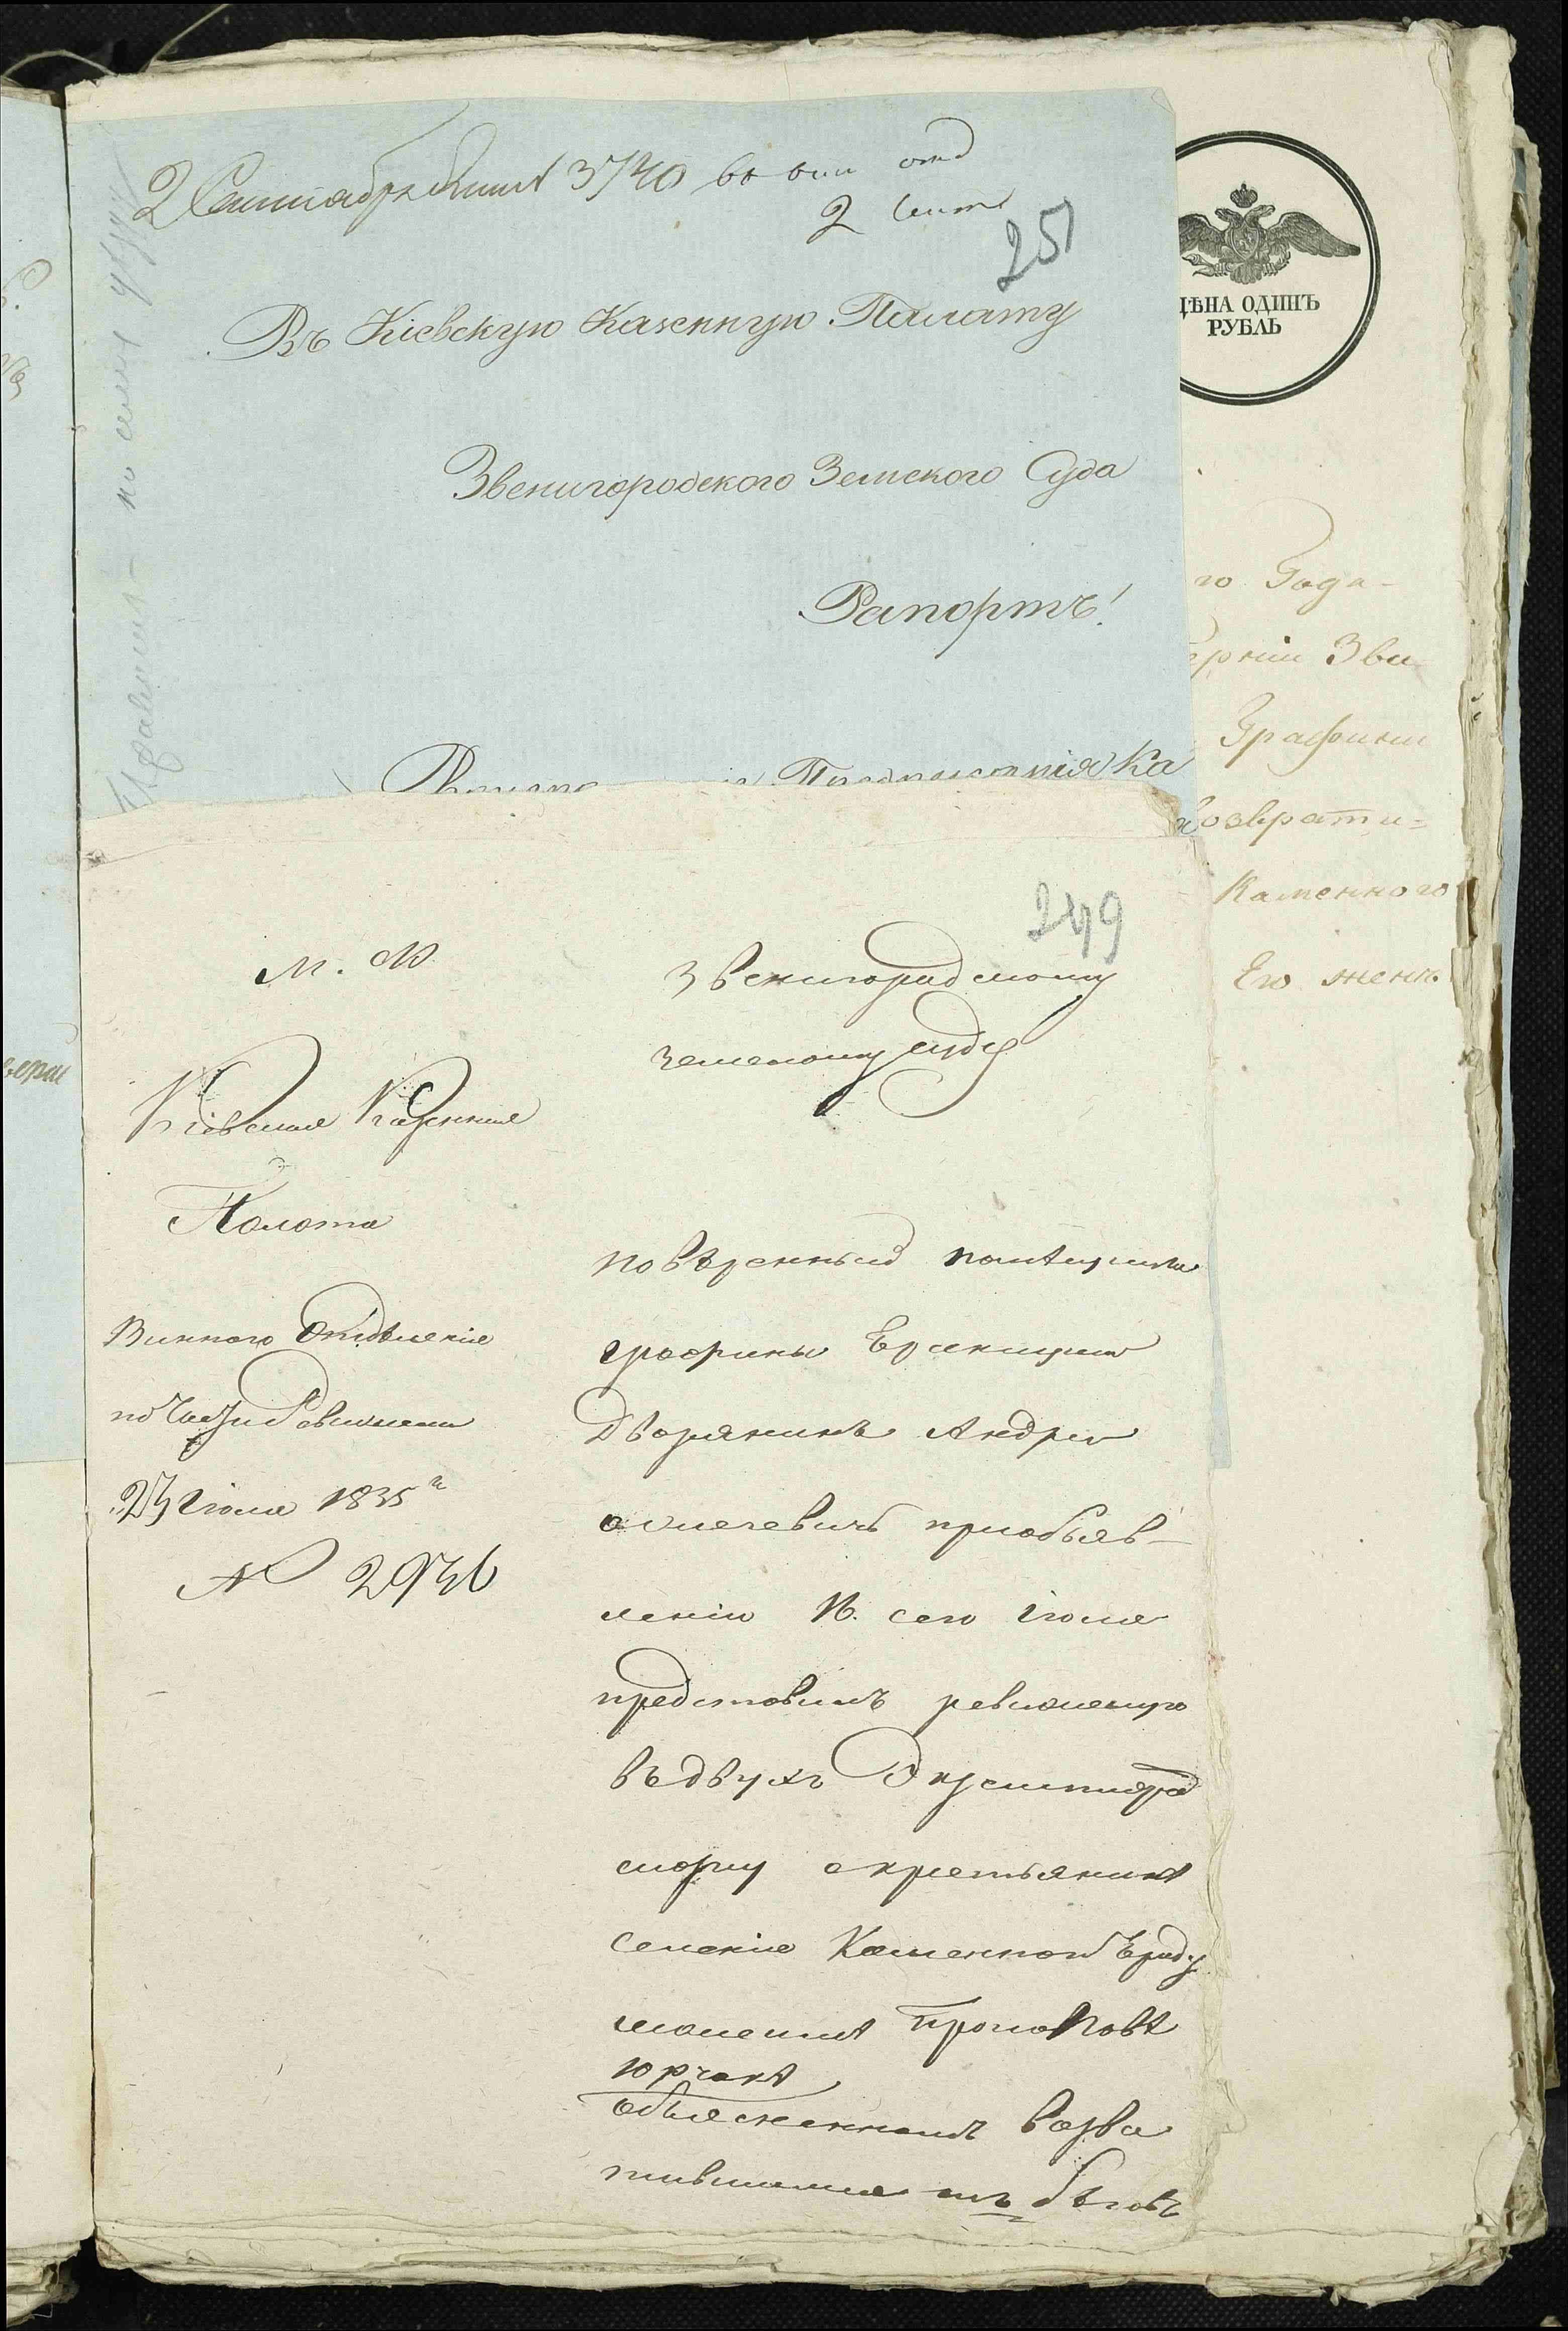 2 Сентября 3740 во вин отд
2 сент
251
Въ Кіевскую Казенную Палату
Звенигородского Земского Суда
Рапортъ!
ЦѢНА ОДИНЪ
РУБЛЬ
го Года
ерніи Зве
Графини
возврати=
Каменного
Его жены
249
М. Ф.
Кіевская Казенная
Палата
Винного Отдѣленія
по части Ревизской
23 Іюля 1835 г
№ 2936
Звенигородскому
земскому суду
повѣренный помѣщицы
графини
Дворянинъ Андрей
приобъяв-
леніи 16. сего іюля
представилъ ревизскую
въ двухъ Экземплярахъ
скаску о крестьянинѣ
селенія Каменной Броду
Прокоповѣ
Юрчакѣ
возвра
тившемся изъ бѣговъ